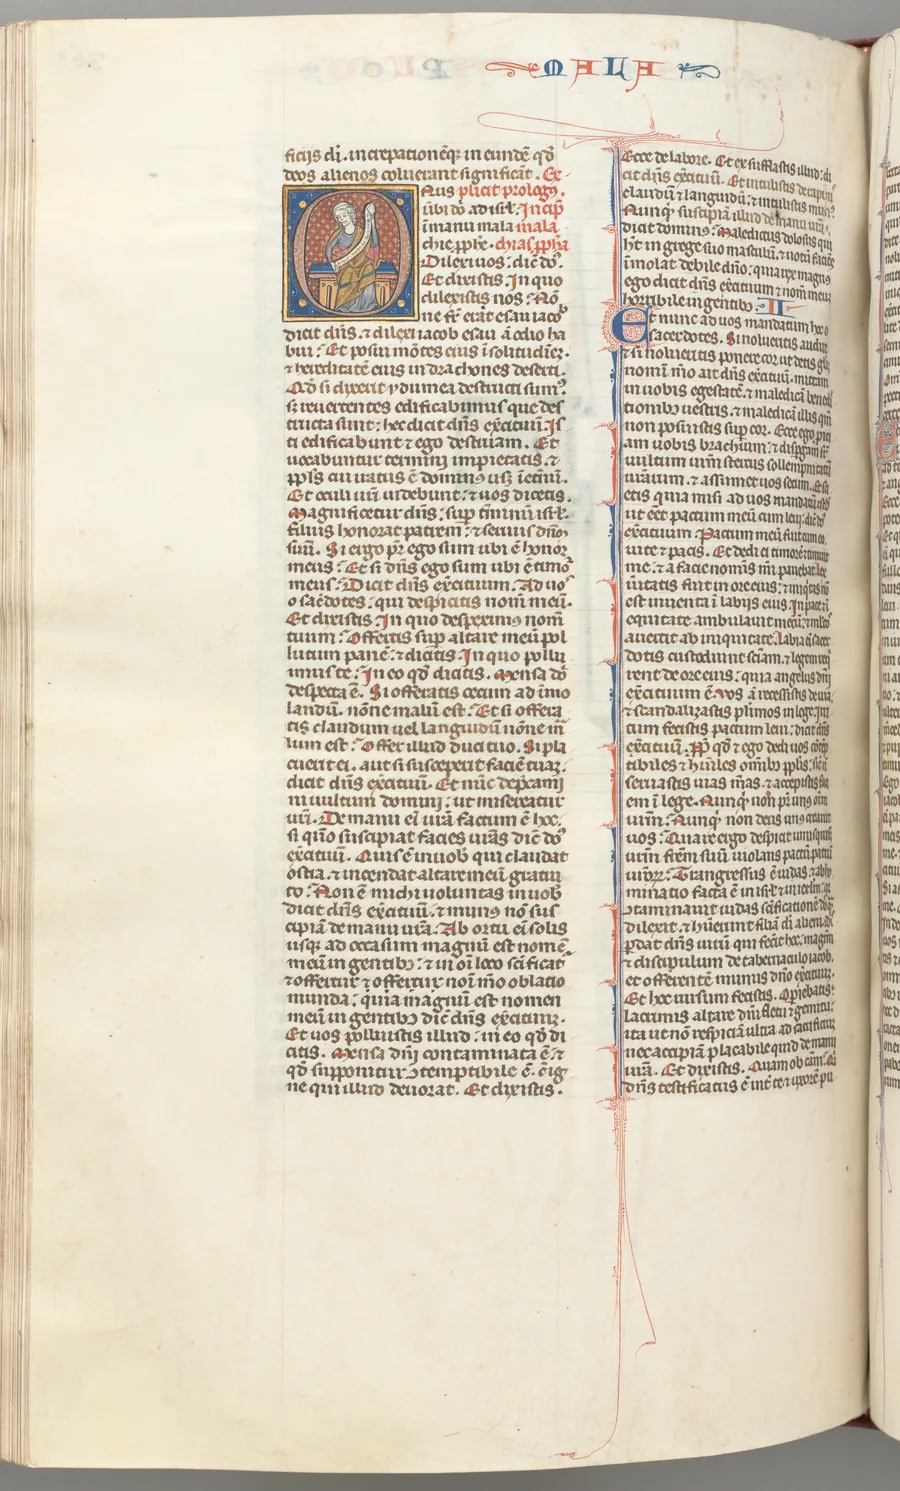 MALA
ficijs di. increpationēq; in eundē qd
deos alienos coluerant significāt. Ex
plicit prologꝰ.
Onus uerbi dn̄i ad isrl. Incip
ī manu mala mala
chie pphe. chias ppha
Dilexi uos: dic̄ dn̄s.
Et dixistis. In quo
dilexistis nos. Nō
ne fr̄ erat esau iacob
dicit dn̄s. ⁊ dilexi iacob esau ā odio ha
bui: Et posui mōtes eius ī solitudinē.
⁊ hereditatē eius in drachones deserti.
Qd si dixerit ydumea destructi sumꝰ.
s; reuertentes edificabimus que des
tructa sunt: hec dicit dn̄s ex̄cituū. Is
ti edificabunt ⁊ ego destruam. Et
uocabuntur termini impietatis. ⁊
ppls cui iratus ē dominus usq; ī et̄nū.
Et oculi ur̄i uidebunt: ⁊ uos dicetis.
Magnificetur dn̄s: sup t̄minū isrl.
filius honorat patrem: ⁊ seruus dn̄m
suū. Si ergo pr̄ ego sum ubi ē honor
meus: Et si dn̄s ego sum ubi ē timor
meus: Dicit dn̄s ex̄cituum. Ad uos
o sac̄dotes: qui despicitis nom̄ meū.
Et dixistis: In quo despeximꝰ nom̄
tuum: Offertis sup altare meū pol
lutum panē: ⁊ dicitis. In quo pollu
imus te: In eo qd dicitis. Mensa dn̄i
despecta ē. Si offeratis cecum ad īmo
landū. nōne malū est: Et si offera
tis claudum uel languidū nōne m̄
lum est: Offer illud duci tuo. Si pla
cuerit ei. aut si susceperit faciē tuā:
dicit dn̄s ex̄cituū. Et nūc dep̄cami
ni uultum domini: ut misereatur
ur̄i. De manu ei ur̄a factum ē hoc.
si quō suscipiat facies ur̄as dic̄ dn̄s
ex̄cituū. Quis ē in uob qui claudat
ostia. ⁊ incendat altare meū gratui
to: Non ē michi uoluntas in uob
dicit dn̄s ex̄cituū. ⁊ munꝰ nō sus
cipiā de manu ur̄a. Ab ortu ei solis
usq; ad occasum magnū est nomē
meū in gentibꝰ: ⁊ in oī loco sc̄ificat
⁊ offertur ⁊ offertur noī m̄o oblatio
munda: quia magnū est nomen
meū in gentibꝰ dic̄ dn̄s ex̄cituū.
Et uos polluistis illud: in eo qd di
citis. Mensa dn̄i contaminata ē: ⁊
qd supponitur ꝯtemptibile ē. c̄ ig
ne qui illud deuorat. Et dixistis.
Ecce de labore. Et exsufflastis illud: di
cit dn̄s ex̄cituū. Et intulistis de rapinis
claudū ⁊ languidū: ⁊ intulistis munꝰ.
Nunq̄ suscipiā illud de manu ur̄a.
dicit dominꝰ: Maledictus dolosus qui
h̄t in grege suo masculū: ⁊ uotū faciēs
īmolat debile dn̄o: quia rex magnꝰ
ego dicit dn̄s ex̄cituum ⁊ nom̄ meū
horribile in gentibꝰ: II
Et nunc ad uos mandatum hoc o
sacerdotes. Si nolueritis audire
⁊ si nolueritis ponere cor ut detis gl̄am
nomī m̄o ait dn̄s ex̄cituū. mittam
in uobis egestatē. ⁊ maledicā bened
tionibꝰ uestris. ⁊ maledicā illis qm̄
non posuistis sup cor. Ecce ego proici
am uobis brachium: ⁊ dispgam sr̄
uultum ur̄m stercus sollempnitatū
ur̄arum. ⁊ assumet uos secum. Et sci
etis quia misi ad uos mandatū istd
ut eēt pactum meū cum leui: dic̄ dn̄s
ex̄cituum. Pactum meū fuit cum eo.
uite ⁊ pacis. Et dedi ei timorē ⁊ timuit
me: ⁊ a facie nomīs m̄i pauebat. Lex
ūitatis fuit in ore eius: ⁊ iniq̄tas nō
est inuenta ī labijs eius. In pace ⁊ ī
equitate ambulauit mecū: ⁊ multos
auertit ab iniquitate. Labia ei sacer
dotis custodiunt sc̄iam. ⁊ legem req̄
rent de ore eius: quia angelus dn̄i
ex̄cituum ē. Vos ā recessistis de uia.
⁊ scandalizastis plimos in lege. Irri
tum fecistis pactum leui: dicit dn̄s
ex̄cituū. Pp̄ qd ⁊ ego dedi uos ꝯtēp
tibiles ⁊ humiles omībꝰ pplis: sic̄ ñ
seruastis uias m̄as. ⁊ accepistis faci
em ī lege. Nunq̄ non pr̄ unꝰ oīm
ur̄m: Nunq̄ non deus unꝰ creauit
uos: Quare ergo despicit unusquisq;
ur̄m frēm suū uiolans pactū patrū
ur̄orꝝ: Transgressus ē iudas. ⁊ abho
minatio facta ē in isrl ⁊ in ierlm: q
ꝯtaminauit iudas sc̄ificationē dn̄i q̄
dilexit. ⁊ habuit filiā di alieni. dis
pdat dn̄s uirū qui fec̄it hoc. magrm̄
⁊ discipulum de tabernaculo iacob.
et offerentē munus dn̄o ex̄cituum.
Et hoc rursum fecistis. Operiebatis
lacrimis altare dn̄i fletu ⁊ gemitu:
ita ut nō respiciā ultra ad sacrificiū
nec accipiā placabile quid de manu
ur̄a. Et dixistis. Quam ob cām: Quia
dn̄s testificatus ē int̄ te ⁊ uxorē pu